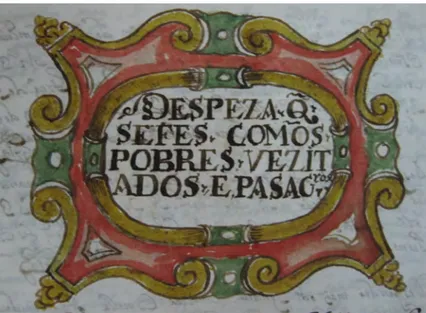 DESPEZA. Q̃.
SEFES. COMOS.
POBRES. VEZIT
ADOS. E. PASAG.ros